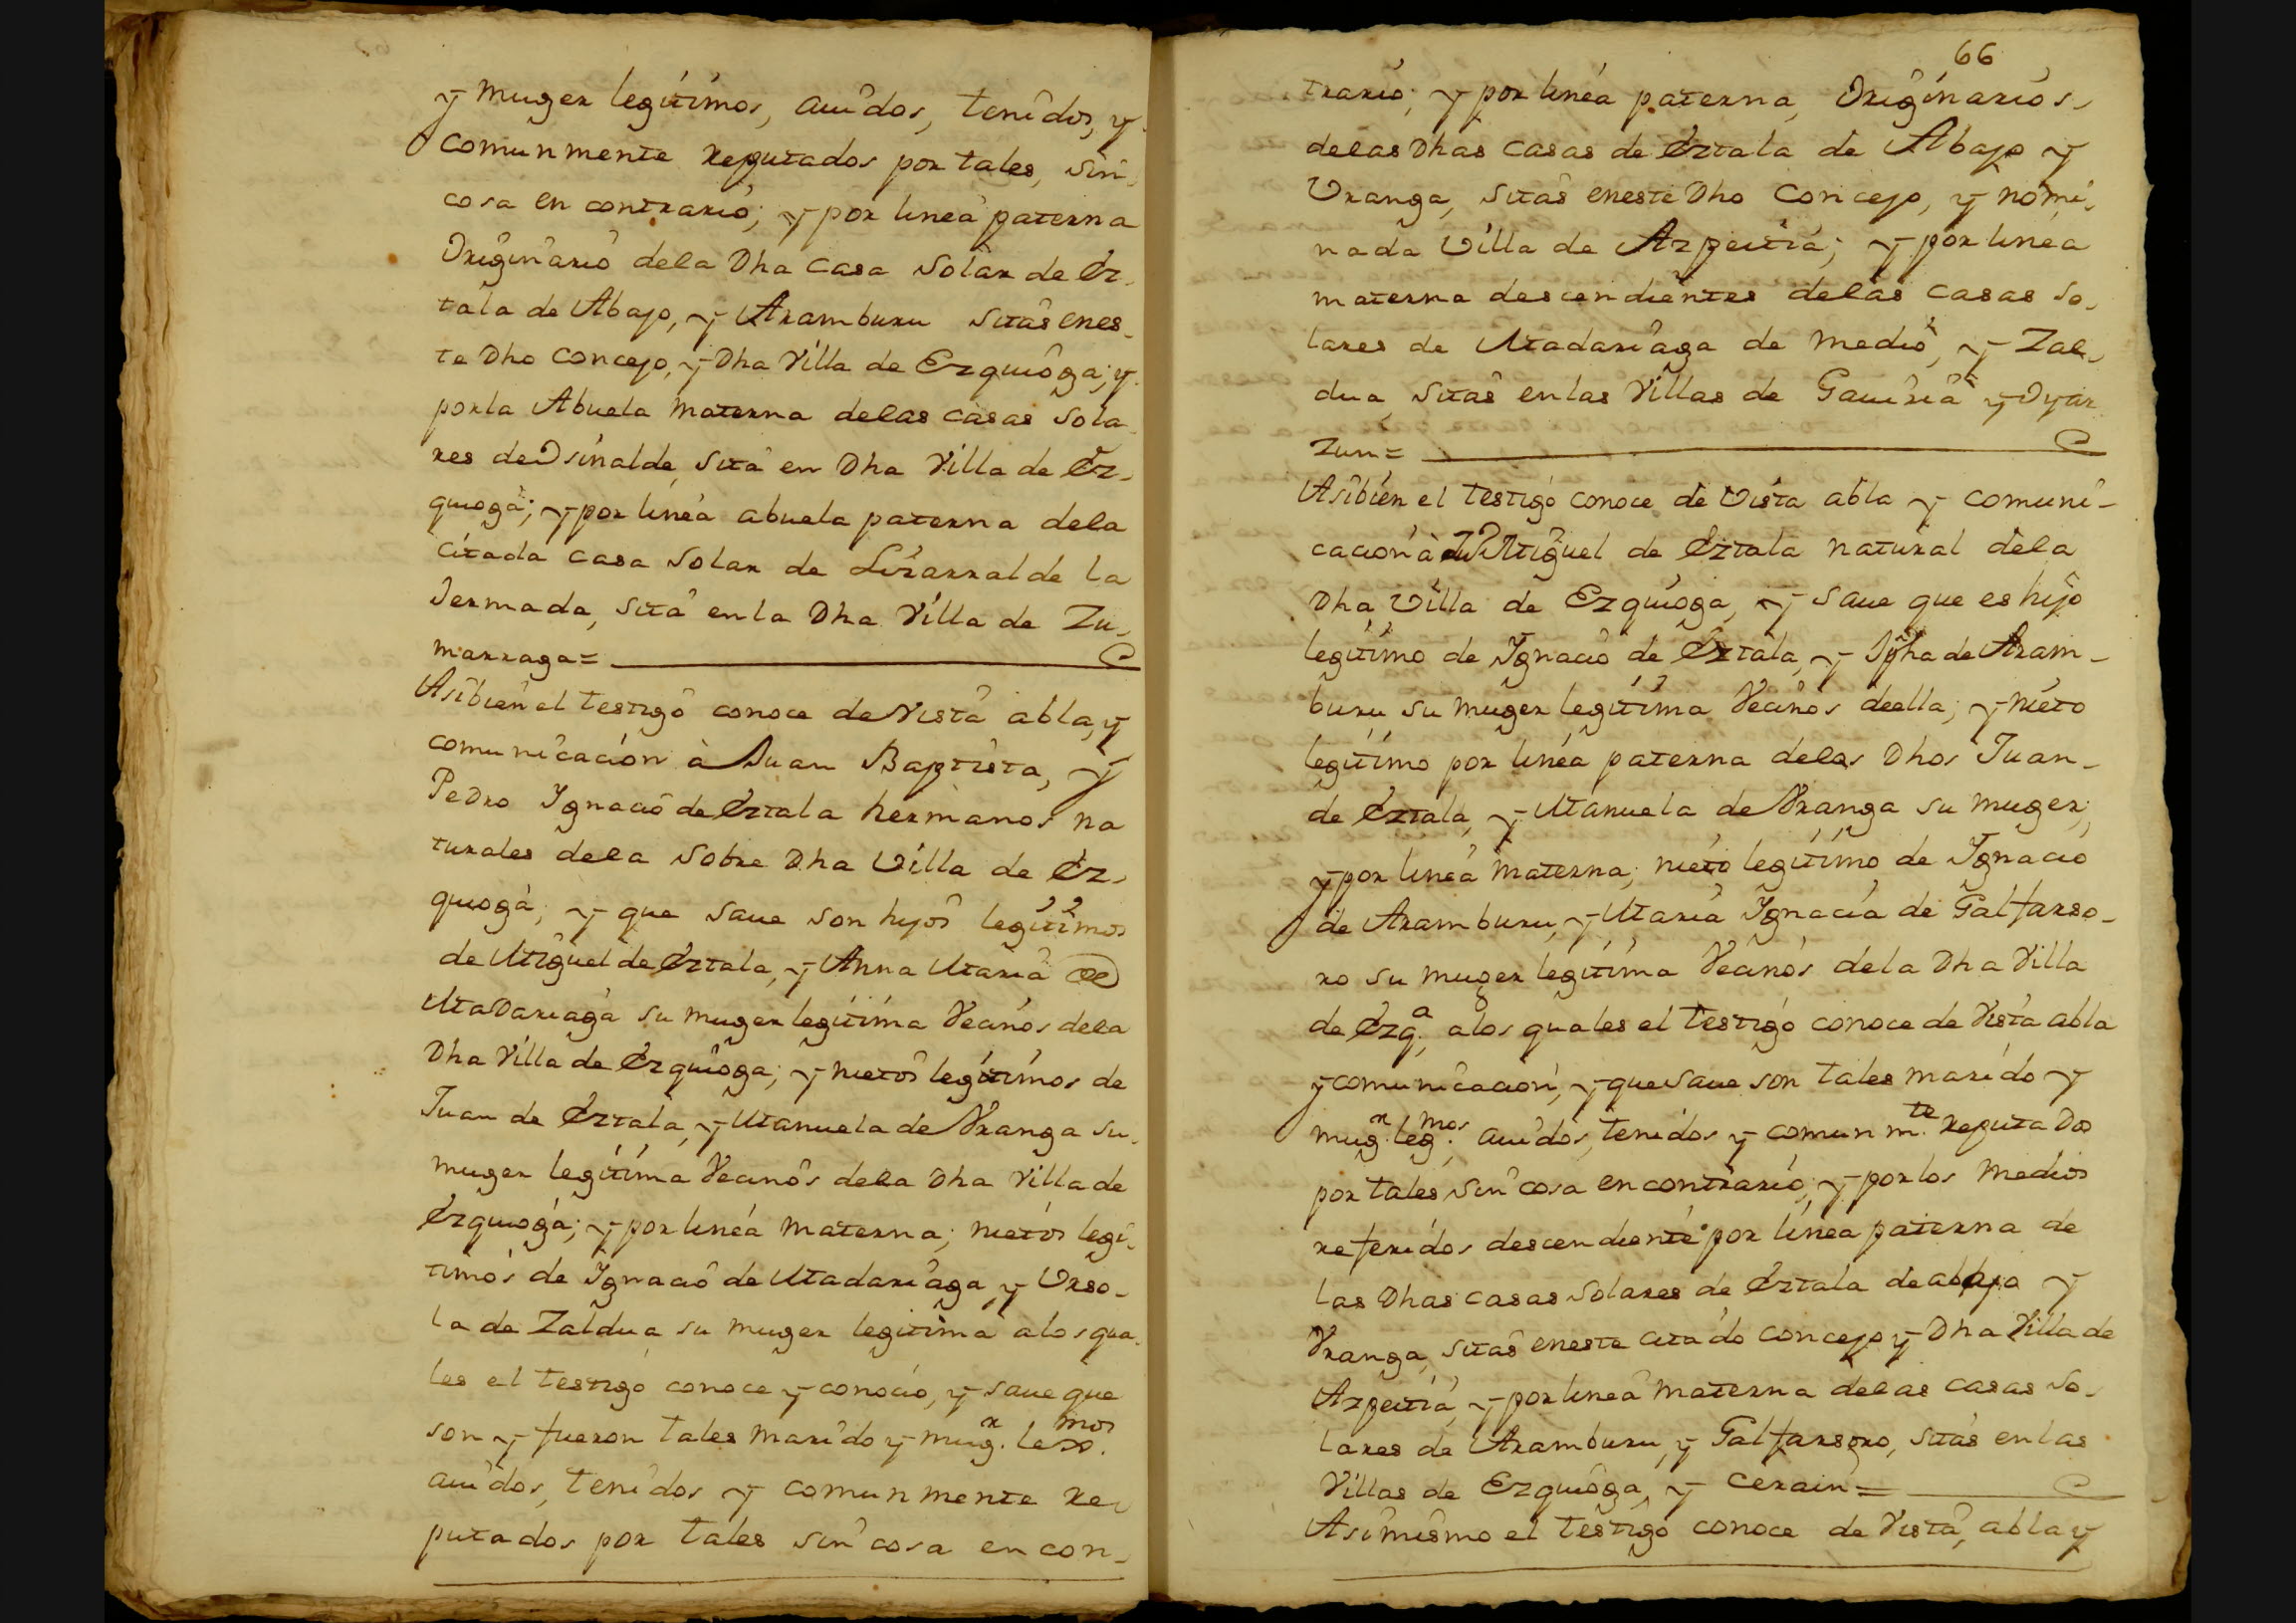 y muger legítimos, auidos, tenidos, y
comunmente reputados por tales, sin
cosa en contrario; y por linea paterna
Originario dela Dha casa Solar de Ez-
tala de Abajo, y Aramburu sitas enes-
te Dho concejo, y Dha Villa de Ezquioga; y
porla Abuela materna delas casas Sola
res de Osinalde, sita en Dha Villa de Ez-
quioga; y por linea abuela paterna dela
citada casa Solar de Lizarralde la
Jermada, sita enla Dha Villa de Zu-
marraga=
Asibien el testigo conoce de Vista abla, y
comunicación à Juan Baptista, y
Pedro Ignacio de Eztala hermanos na
turales dela Sobre Dha Villa de Ez-
quioga; y que saue son hijos legitimos
de Miguel de Eztala, y Anna Maria de
Madariaga su muger legitima Vecinos dela
Dha Villa de Ezquioga; y nietos legítimos de
Juan de Eztala, y Manuela de Vranga su
muger legítima Vecinos dela Dha Villa de
Ezquioga; y por linea materna; nietos legi-
timos de Ignacio de Madariaga y Vrso-
la de Zaldua su muger legitima alos qua
les el testigo conoce y conocio, y saue que
son y fueron tales marido y mug.r lexmos.
auidos, tenidos y comunmente re-
putados por tales sin cosa en con-
66
trario; y por linea paterna, Originarios
delas Dhas casas de Eztala de Abajo y
Vranga, sitas eneste Dho Concejo, y nomi-
nada Villa de Azpeitia; y por linea
materna descendientes delas casas so-
lares de Madariaga de medio, y Zal-
dua, sitas enlas Villas de Gauiria y Oyar
zun=
Asibien el testigo conoce de Vista abla y comuni-
cacion à Miguel de Eztala natural dela
Dha Villa de Ezquioga, y saue que es hijo
legitimo de Ignacio de Eztala, y Jpha de Aram-
buru su muger legítima Vecinos deella; y nieto
legítimo por linea paterna delos Dhos Juan
de Eztala, y Manuela de Vranga su muger;
y por linea materna; nieto legítimo de Ignacio
de Aramburu, y Maria Ignacia de Galfarso-
ro su muger legítima Vecinos dela Dha Villa
de Ezq.a, alos quales el testigo conoce de Vista abla
y comunicacion, y que saue son tales marido y
mug.r leg.mos, auidos, tenidos y comunm.te reputados
por tales, sin cosa en contrario; y por los medios
referidos descendiente por linea paterna de
las Dhas casas Solares de Eztala de abajo y
Vranga, sitas eneste citado concejo y Dha Villa de
Azpeitia, y por linea materna delas casas so-
lares de Aramburu, y Galfarsoro, sitas enlas
Villas de Ezquioga, y Cerain=
Asimismo el testigo conoce de Vista, abla y